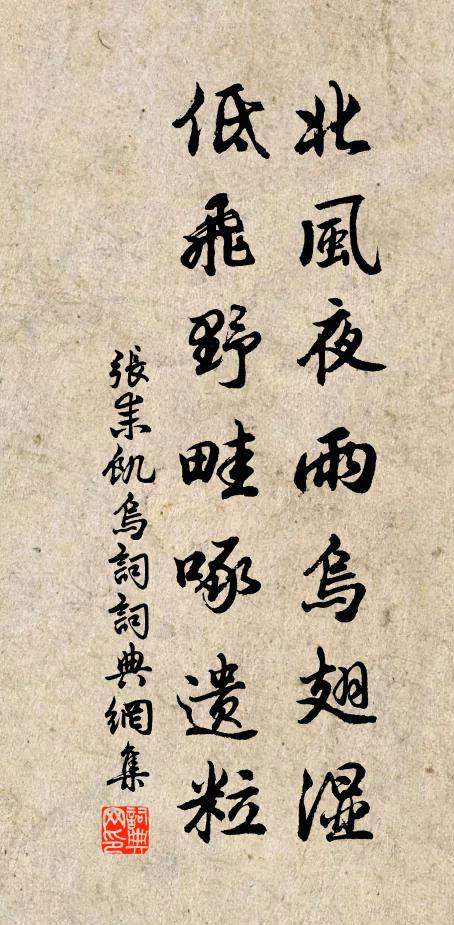 北風夜雨烏翅湿
低飛野畦啄遺粒
張耒飢烏詞詞典網集
詞典网印